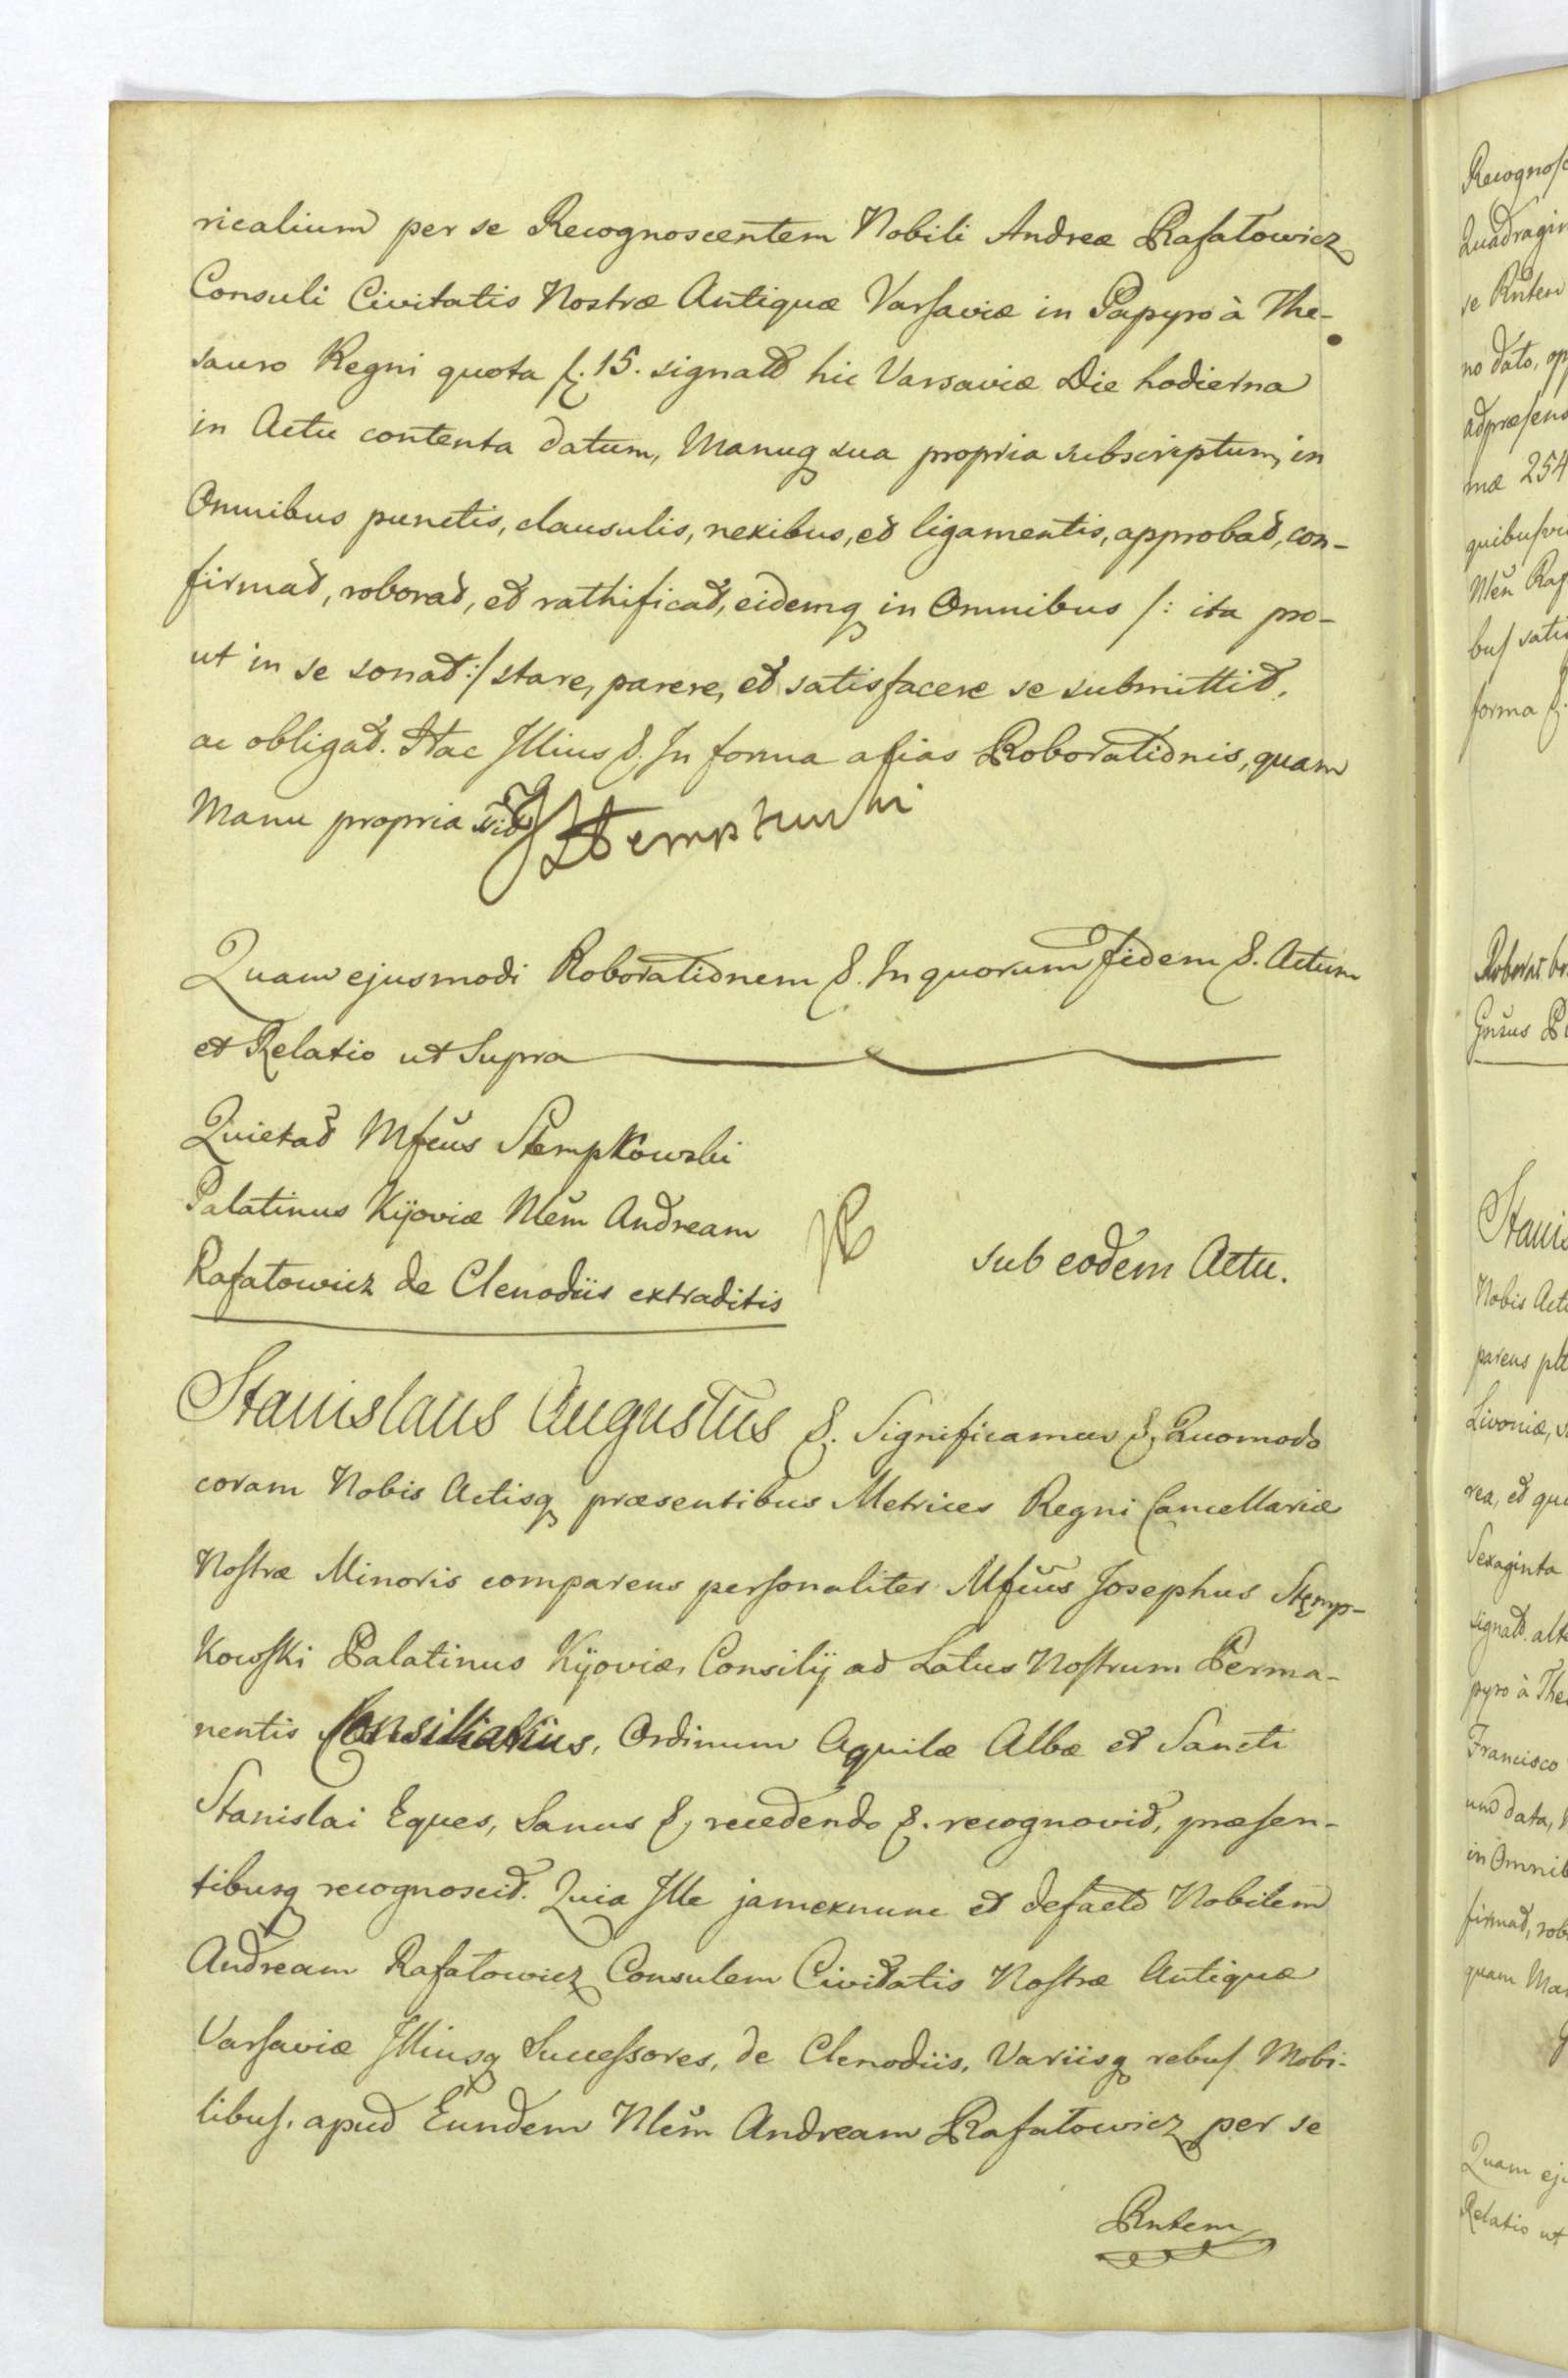 ricalium per se Recognoscentem Nobili Andreæ Rafałowicz
Consuli Civitatis Nostræ Antiquæ Varsaviæ in Papyro à The-
sauro Regni quota f. 15. signat hic Varsaviæ Die hodierna
in Actu contenta datum, Manuq sua propria subscriptum, in
Omnibus punctis, clausulis, nexibus, et ligamentis, approbat, con-
firmat, roborat, et rathificat, eidemq in Omnibus /: ita pro-
ut in se sonat :/ stare, parere, et satisfacere se submittit,
ac obligat. Hac Illius &. In forma asias Roborationis, quam
Manu propria
Quam ejusmodi Roborationem &. In quorum fidem &. Actum
et Relatio ut Supra
Quietat Mfcus Stempkowski
Palatinus Kijoviæ Nlem Andream
Rafałowicz de Clenodiis extraditis
sub eodem Actu.
Stanislaus Augustus &. Significamus &. Quomodo
coram Nobis Actisq præsentibus Metrices Regni Cancellariæ
Nostræ Minoris comparens personaliter Mfcus Josephus Stęmp-
kowski Palatinus Kijoviæ, Consilij ad Latus Nostrum Perma-
nentis Consiliarius, Ordinum Aquilæ Albæ et Sancti
Stanislai Eques, Sanus &, recedendo &. recognovit, præsen-
tibusq recognoscit. Quia Ille jamexnunc et defacto Nobilem
Andream Rafałowicz Consulem Civitatis Nostræ Antiquæ
Varsaviæ Illiusq Successores, de Clenodiis, Variisq rebus Mobi-
libus, apud Eundem Nlem Andream Rafałowicz per se
Rntem
Recognosc
Quadragin
se Rntem
no dato, op
ad præsens
mæ 254
quibusvi
Nlem Raf
bus satis
forma &.
Roborat
Stanis
Nobis Acti
parens
Livoniæ,
rea, et qu
Sexaginta
signat. alt
pyro à The
Francisco
data,
in Omnib
firmat, rob
quam Ma
Quam ej
Relatio ut